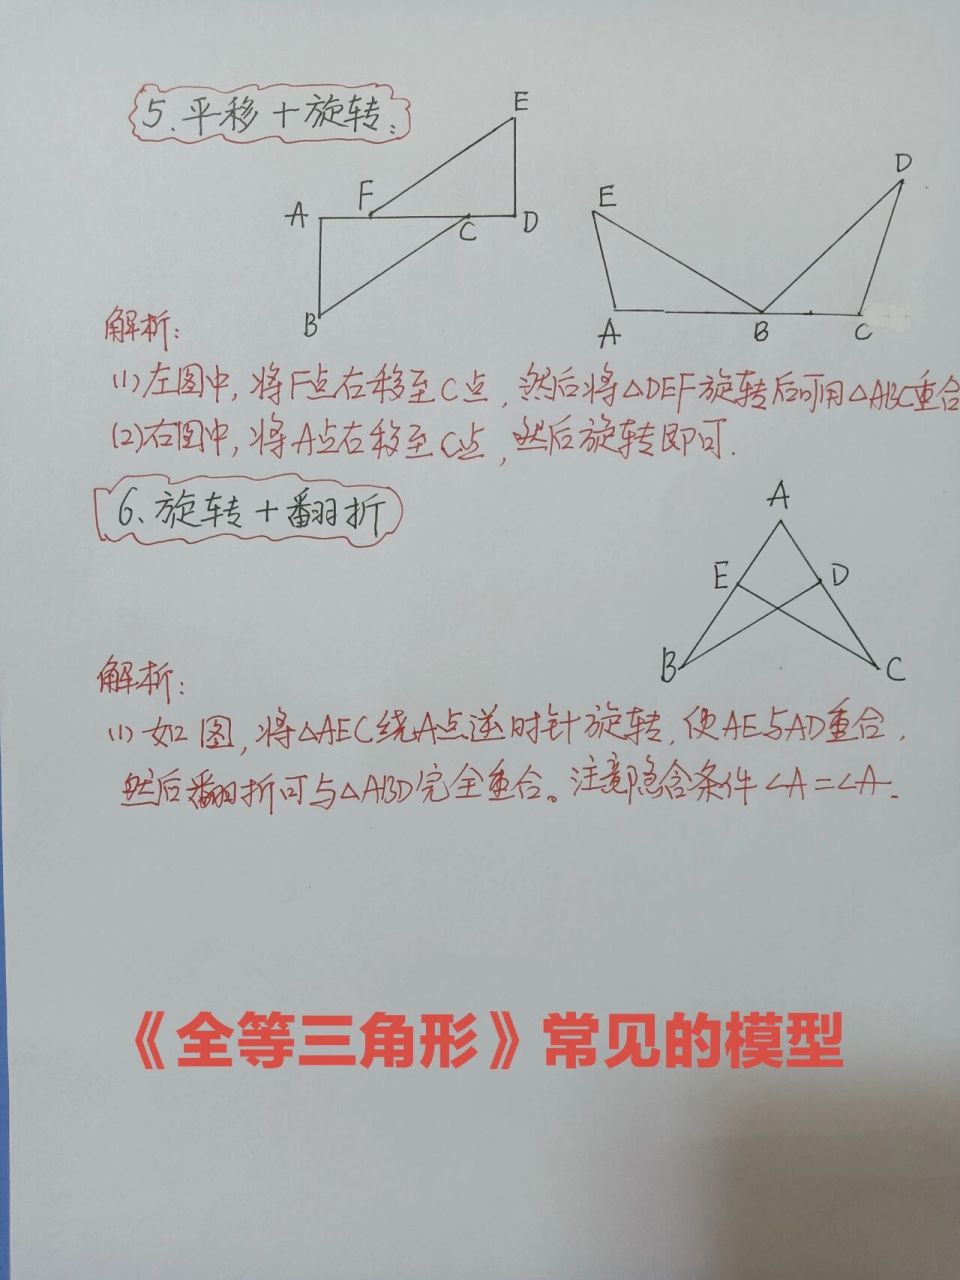 5、平移+旋转:
E
A F C D
B
E D
A B C
解析:
(1)左图中,将F点右移至C点,然后将△DEF旋转后可用△ABC重合
(2)右图中,将A点右移至C点,然后旋转即可.
6、旋转+翻折
A
E D
B C
解析:
(1)如图,将△AEC绕A点逆时针旋转,使AE与AD重合,
然后翻折可与△ABD完全重合。注意隐含条件∠A=∠A.
《全等三角形》常见的模型